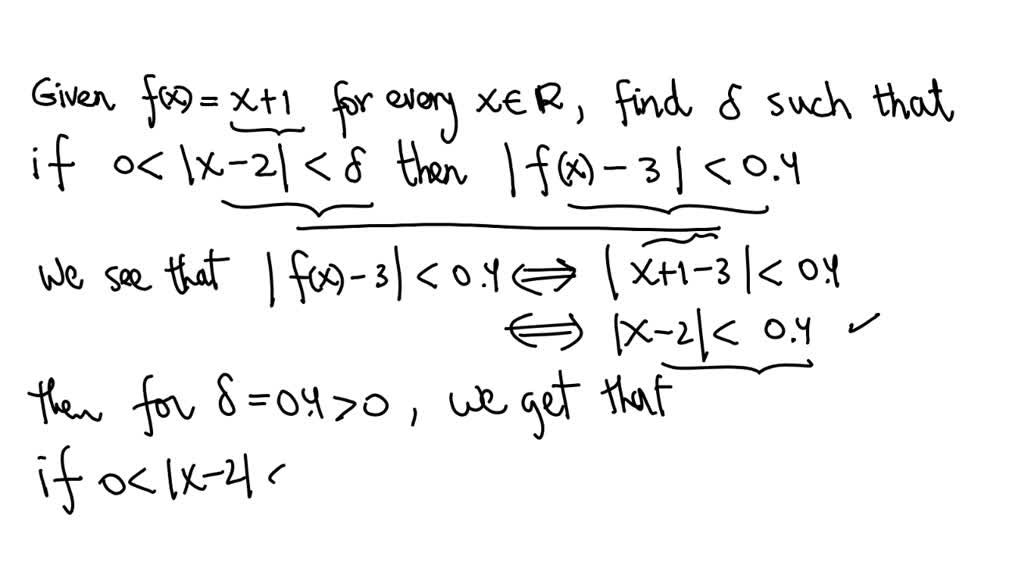 Given f(x) = x+1 for every x∈R, find δ such that
if 0< |x-2| < δ then |f(x) - 3| < 0.4
We see that |f(x)-3| < 0.4 ⟺ |x+1-3| < 0.4
⟺ |x-2| < 0.4 ✓
then for δ = 0.4 > 0, we get that
if 0< |x-2| <